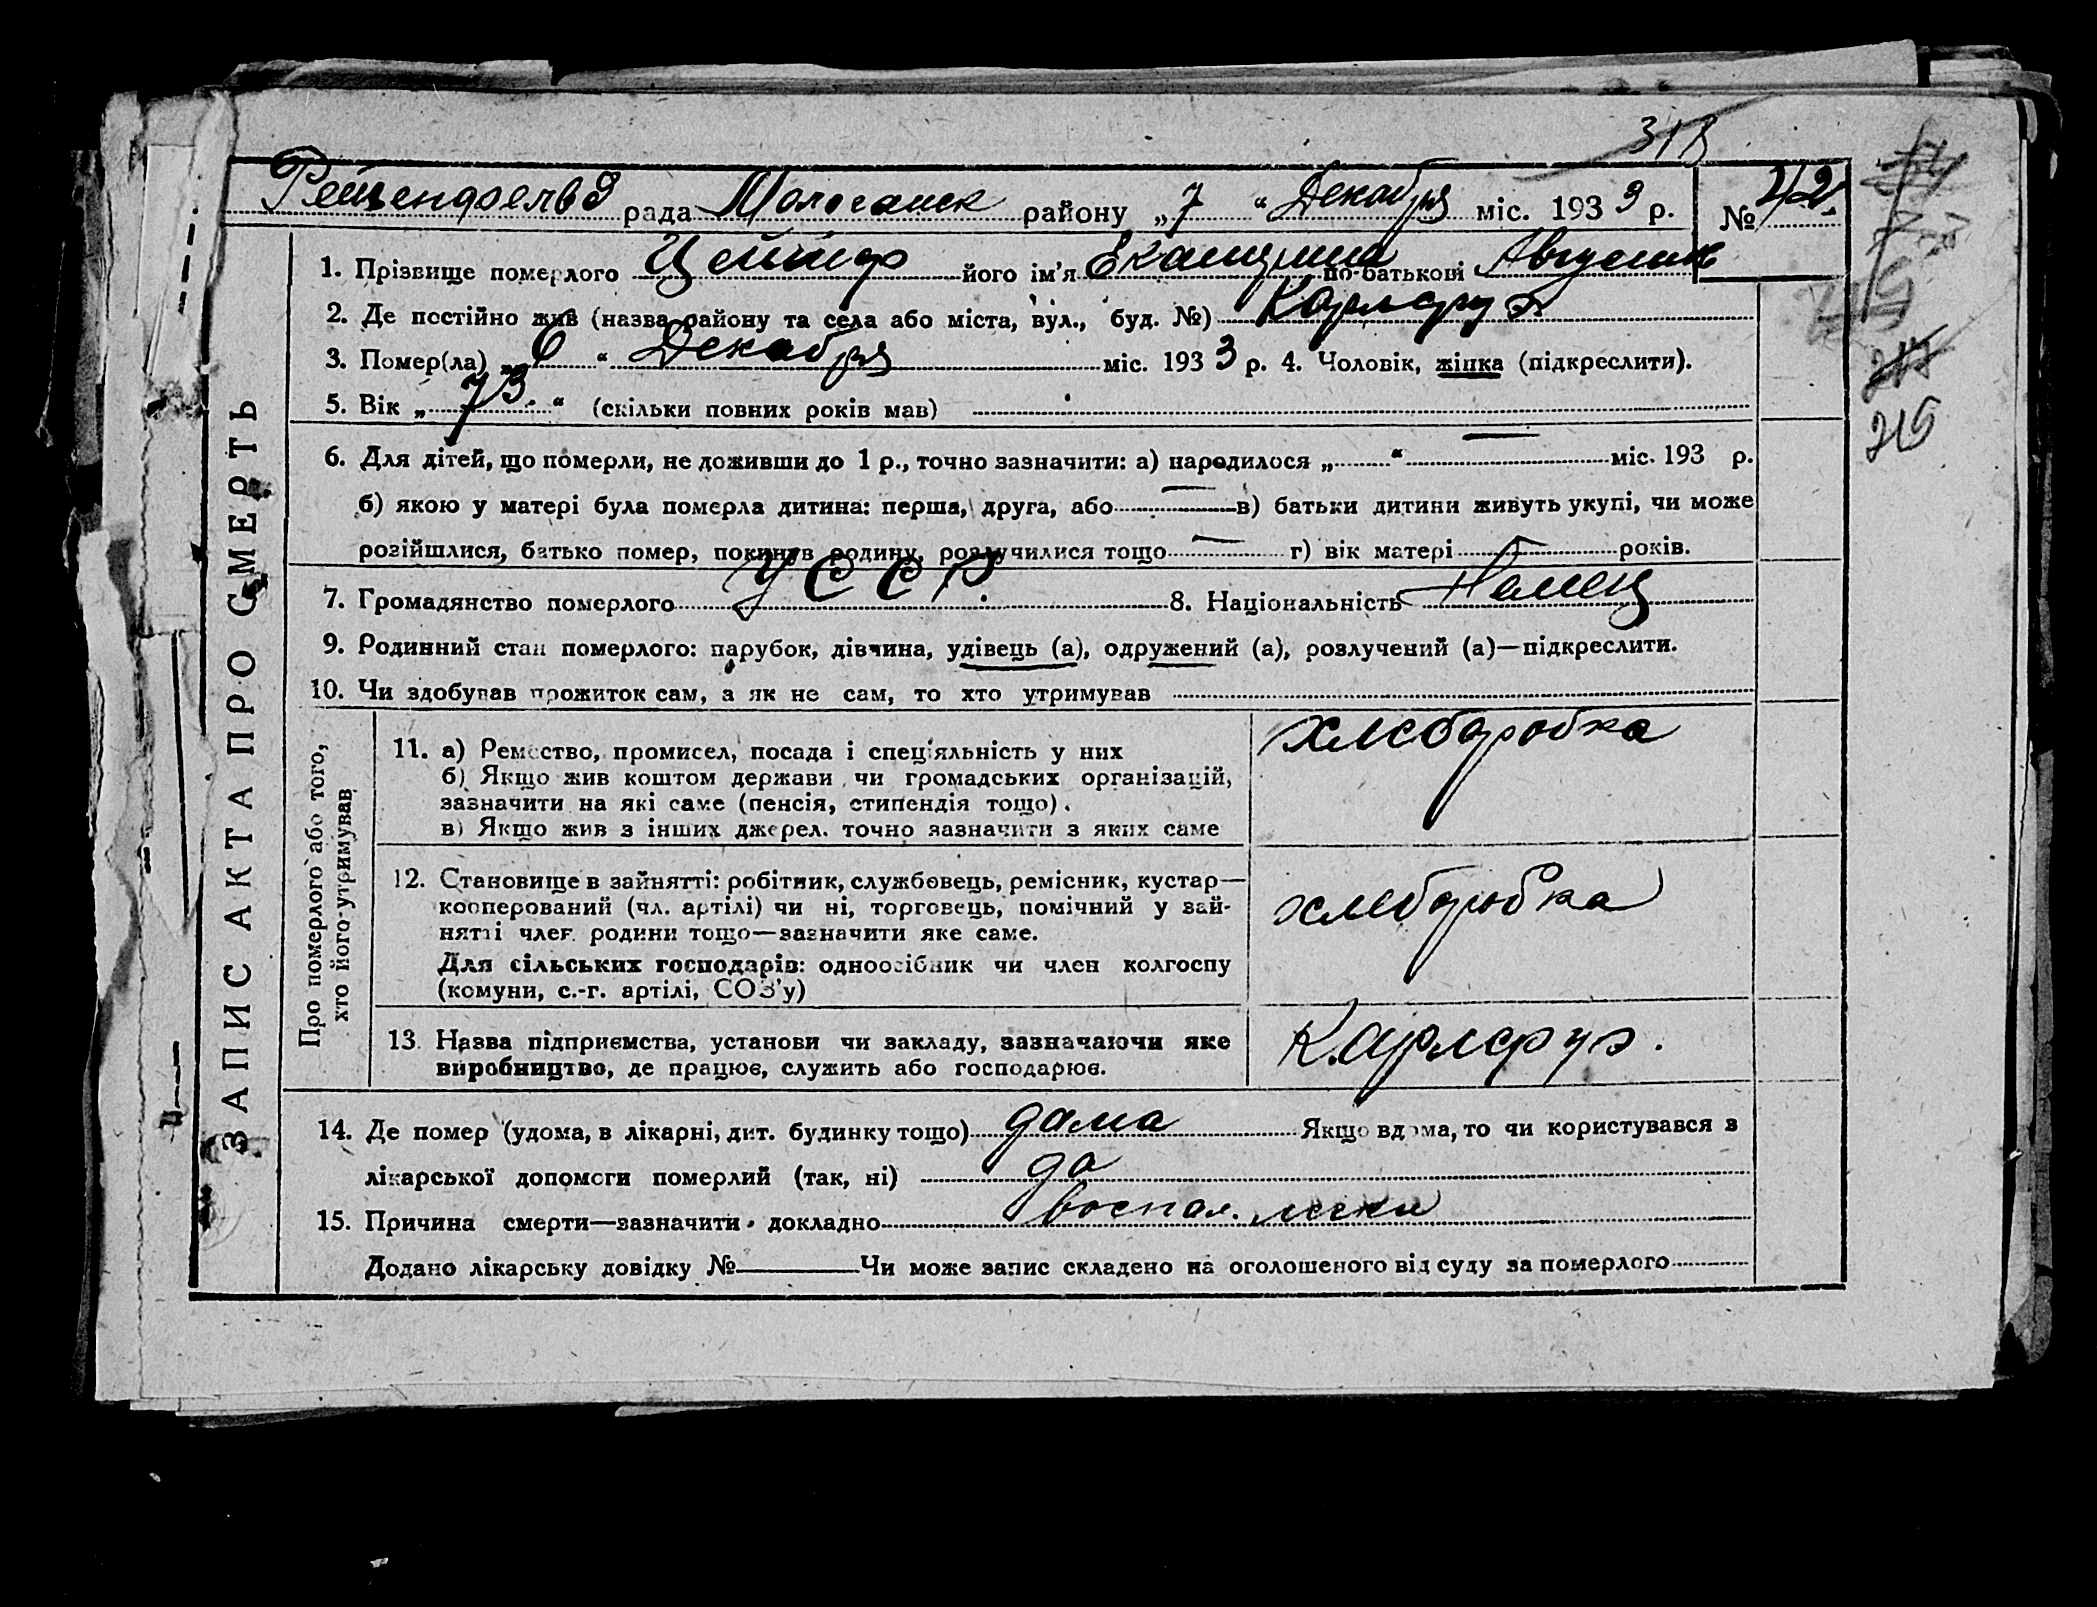 318
Рейхенфельд рада Молочанск району „7“ Декабря міс. 1933 р. № 42
1. Прізвище померлого його ім'я Екатерина по-батькові Августов
2. Де постійно жив (назва району та села або міста, вул., буд. №) Карлсруэ
3. Помер(ла) „6“ Декабря міс. 1933 р. 4. Чоловік, жінка (підкреслити).
5. Вік „73“ (скільки повних років мав)
6. Для дітей, що померли, не доживши до 1 р., точно зазначити: а) народилося „ “ — міс. 193 р.
б) якою у матері була померла дитина: перша, друга, або — в) батьки дитини живуть укупі, чи може
розійшлися, батько помер, покинув родину, розлучилися тощо — г) вік матері — років.
7. Громадянство померлого УССР. 8. Національність Немец
9. Родинний стан померлого: парубок, дівчина, удівець (а), одружений (а), розлучений (а)—підкреслити.
10. Чи здобував прожиток сам, а як не сам, то хто утримував
ЗАПИС АКТА ПРО СМЕРТЬ
Про померлого або того,
хто його утримував
11. а) Ремество, промисел, посада і спеціяльність у них
б) Якщо жив коштом держави чи громадських організацій,
зазначити на які саме (пенсія, стипендія тощо).
в) Якщо жив з інших джерел, точно зазначити з яких саме
хлеборобка
12. Становище в зайнятті: робітник, службовець, ремісник, кустар—
кооперований (чл. артілі) чи ні, торговець, помічний у зай-
нятті член родини тощо—зазначити яке саме.
Для сільських господарів: одноосібник чи член колгоспу
(комуни, с.-г. артілі, СОЗ'у)
хлеборобка
13. Назва підприємства, установи чи закладу, зазначаючи яке
виробництво, де працює, служить або господарює.
Карлсруэ.
14. Де помер (удома, в лікарні, дит. будинку тощо) дома Якщо вдома, то чи користувався з
лікарської допомоги померлий (так, ні) да
15. Причина смерти—зазначити докладно воспал. легки
Додано лікарську довідку № Чи може запис складено на оголошеного від суду за померлого
215